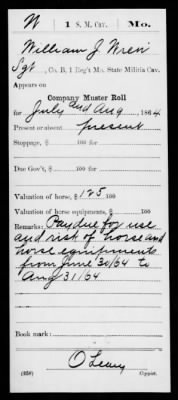 W 1 S. M. Cav. Mo.
William J Wren
Sgt, Co. B, 1 Reg't Mo. State Militia Cav.
Appears on
Company Muster Roll
for July and Aug, 1864.
Present or absent present
Stoppage, $ 100 for
Due Gov't, $ 100 for
Valuation of horse, $ 125 100
Valuation of horse equipments, $ 100
Remarks: Pay due for use
and risk of horse and
horse equipments
from June 30/64 to
Aug 31/64
Book mark:
O'Leary
(358) Copyist.